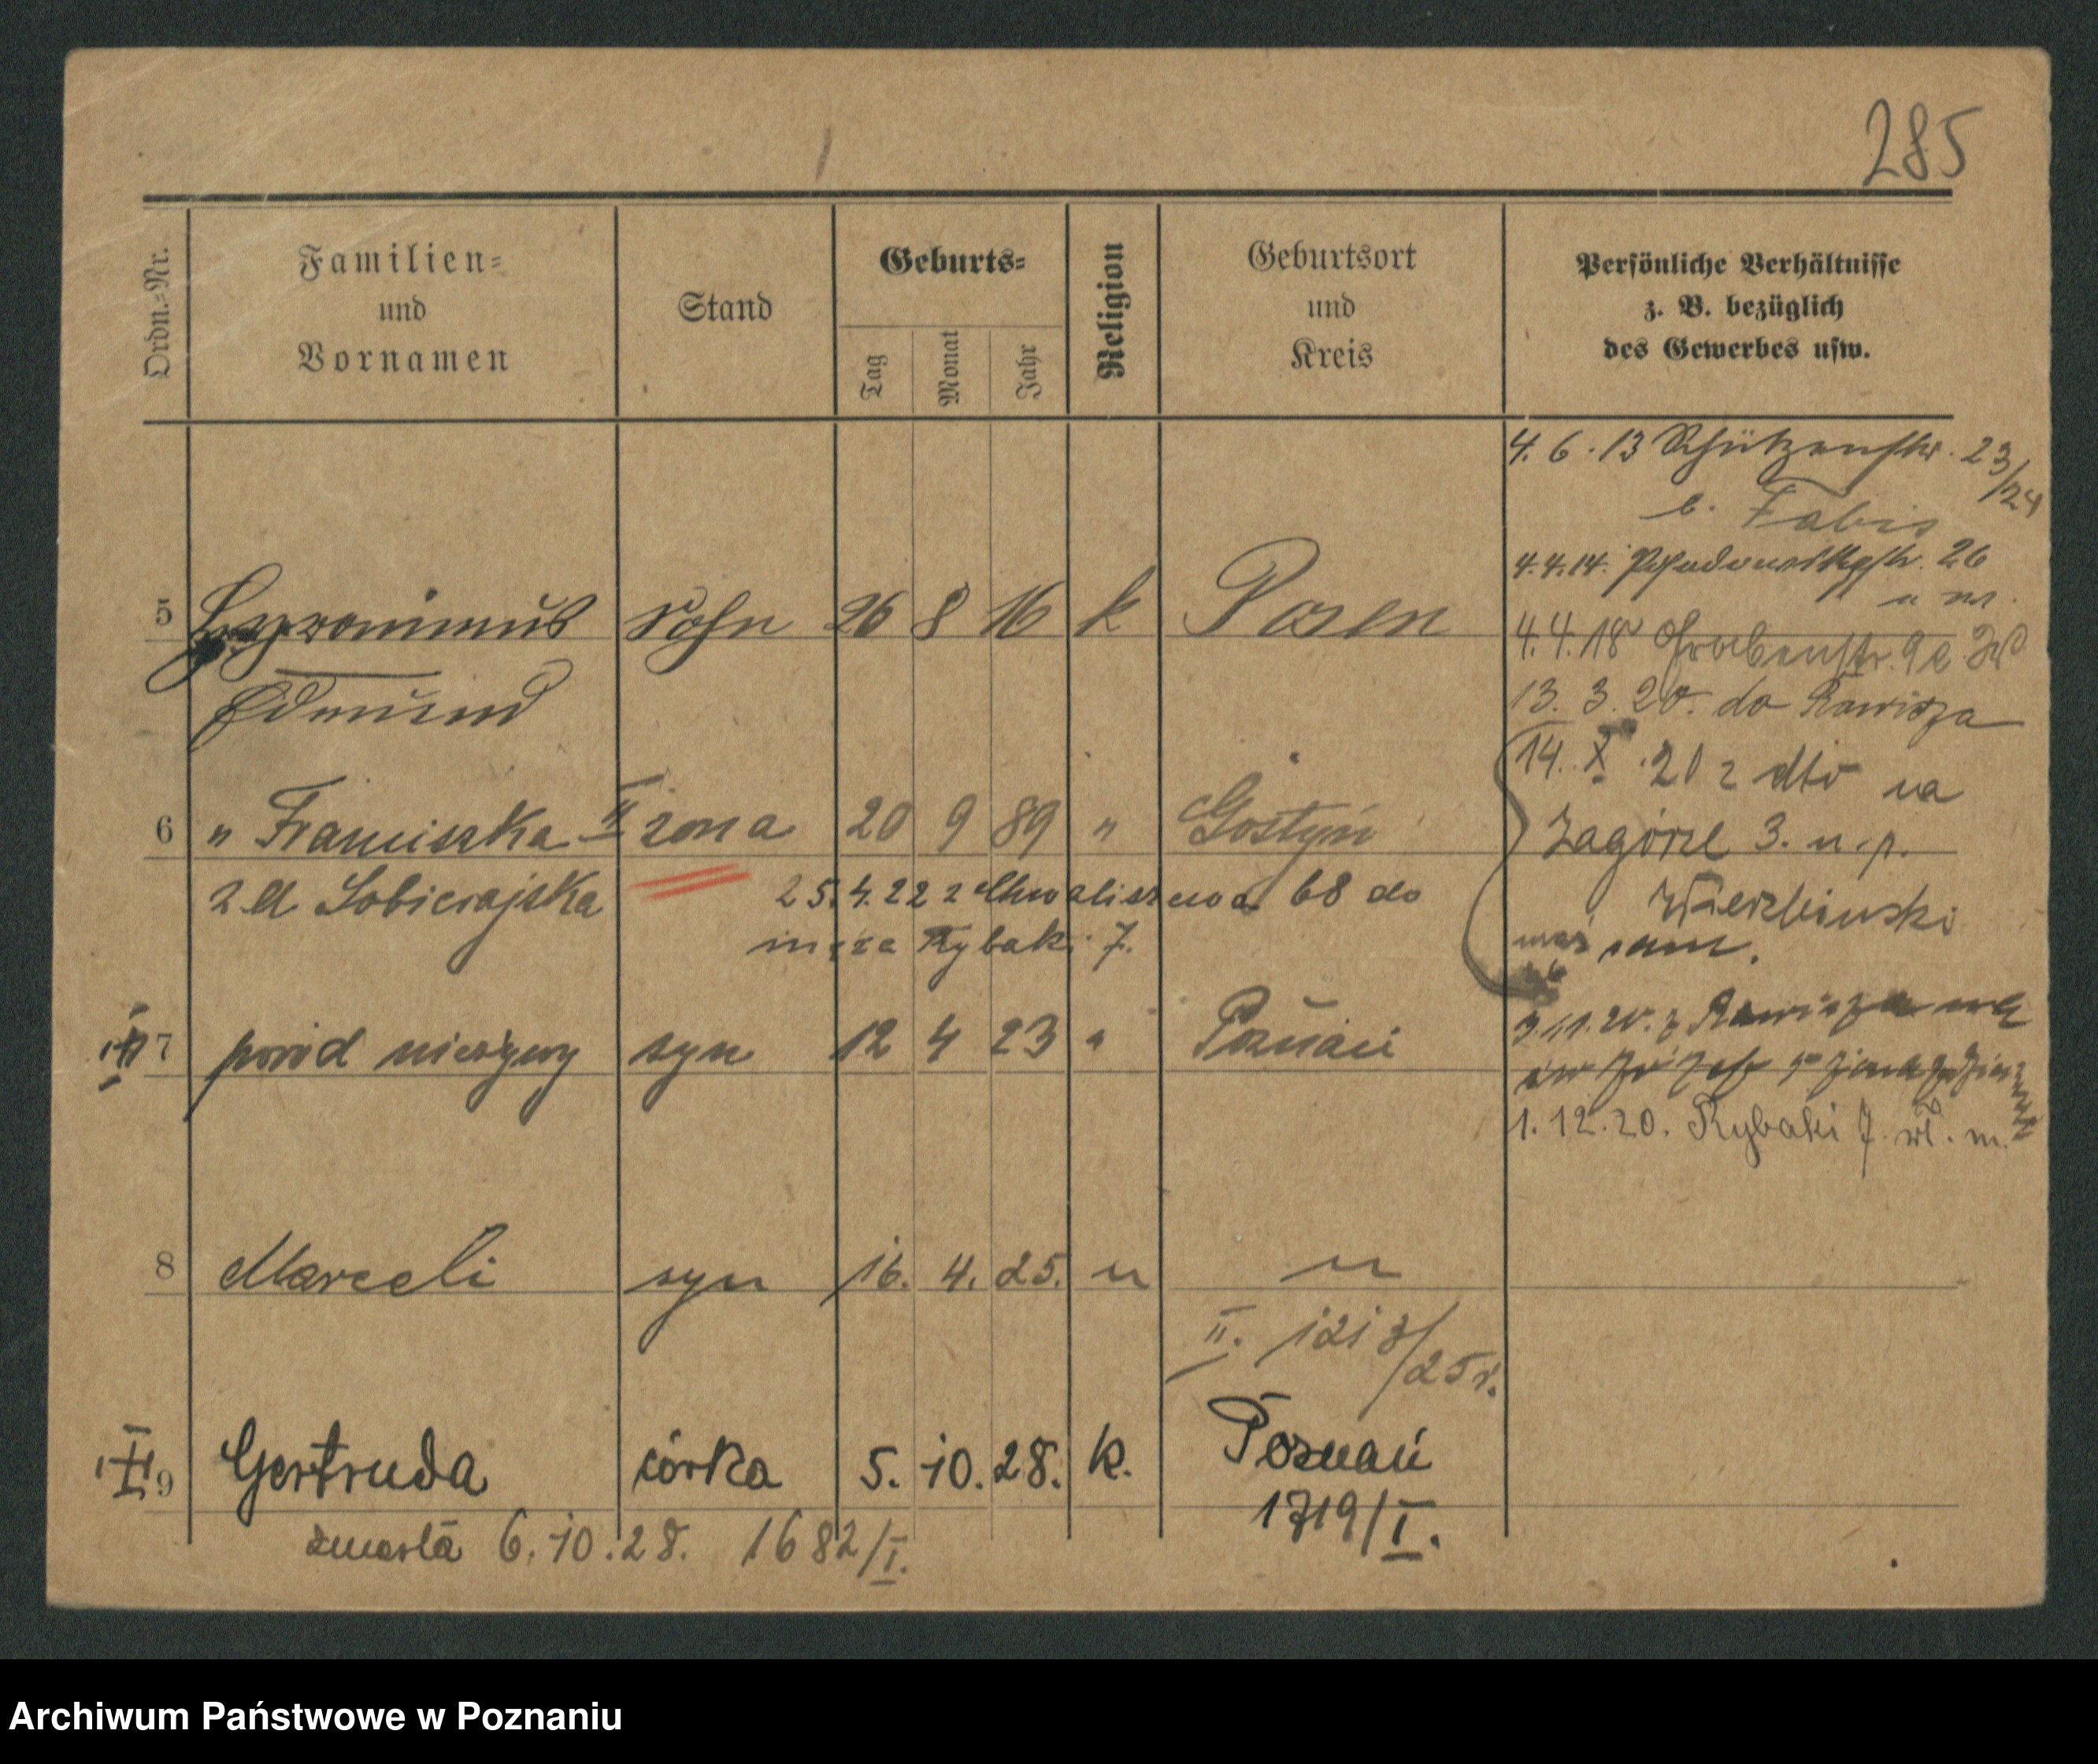 285
Ordn.-Nr.
Familien-
und
Vornamen
Stand
Geburts-
Tag
Monat
Jahr
Religion
Geburtsort
und
Kreis
Persönliche Verhältnisse
z. B. bezüglich
des Gewerbes usw.
4. 6. 13 Schützenstr. 23/24
b. Fabis
4.4.14. 26
5 Hyronimus Sohn 26 8 16 k Posen
4.4.18 Grabenstr. 9
Edmund
13. 3. 20. do Rawicza
14. X. 20 z dto na
6 " Franciszka II żona 20 9 89 " Gostyń
Zagórze 3. u. p.
z d. Sobierajska
25.4.22 z Chwaliszewa 68 do
Wierzbinski
męża Rybaki 7.
sam.
7 poród nieżywy syn 12 4 23 " Poznań
3.11.20. z Rawicza na
1.12.20. Rybaki 7. wł. m.
8 Marceli syn 16. 4. 25. " "
II. 1213/25r.
9 Gertruda córka 5. 10. 28. k. Poznań
1719/I.
zmarła 6.10.28. 1682/I.
Archiwum Państwowe w Poznaniu